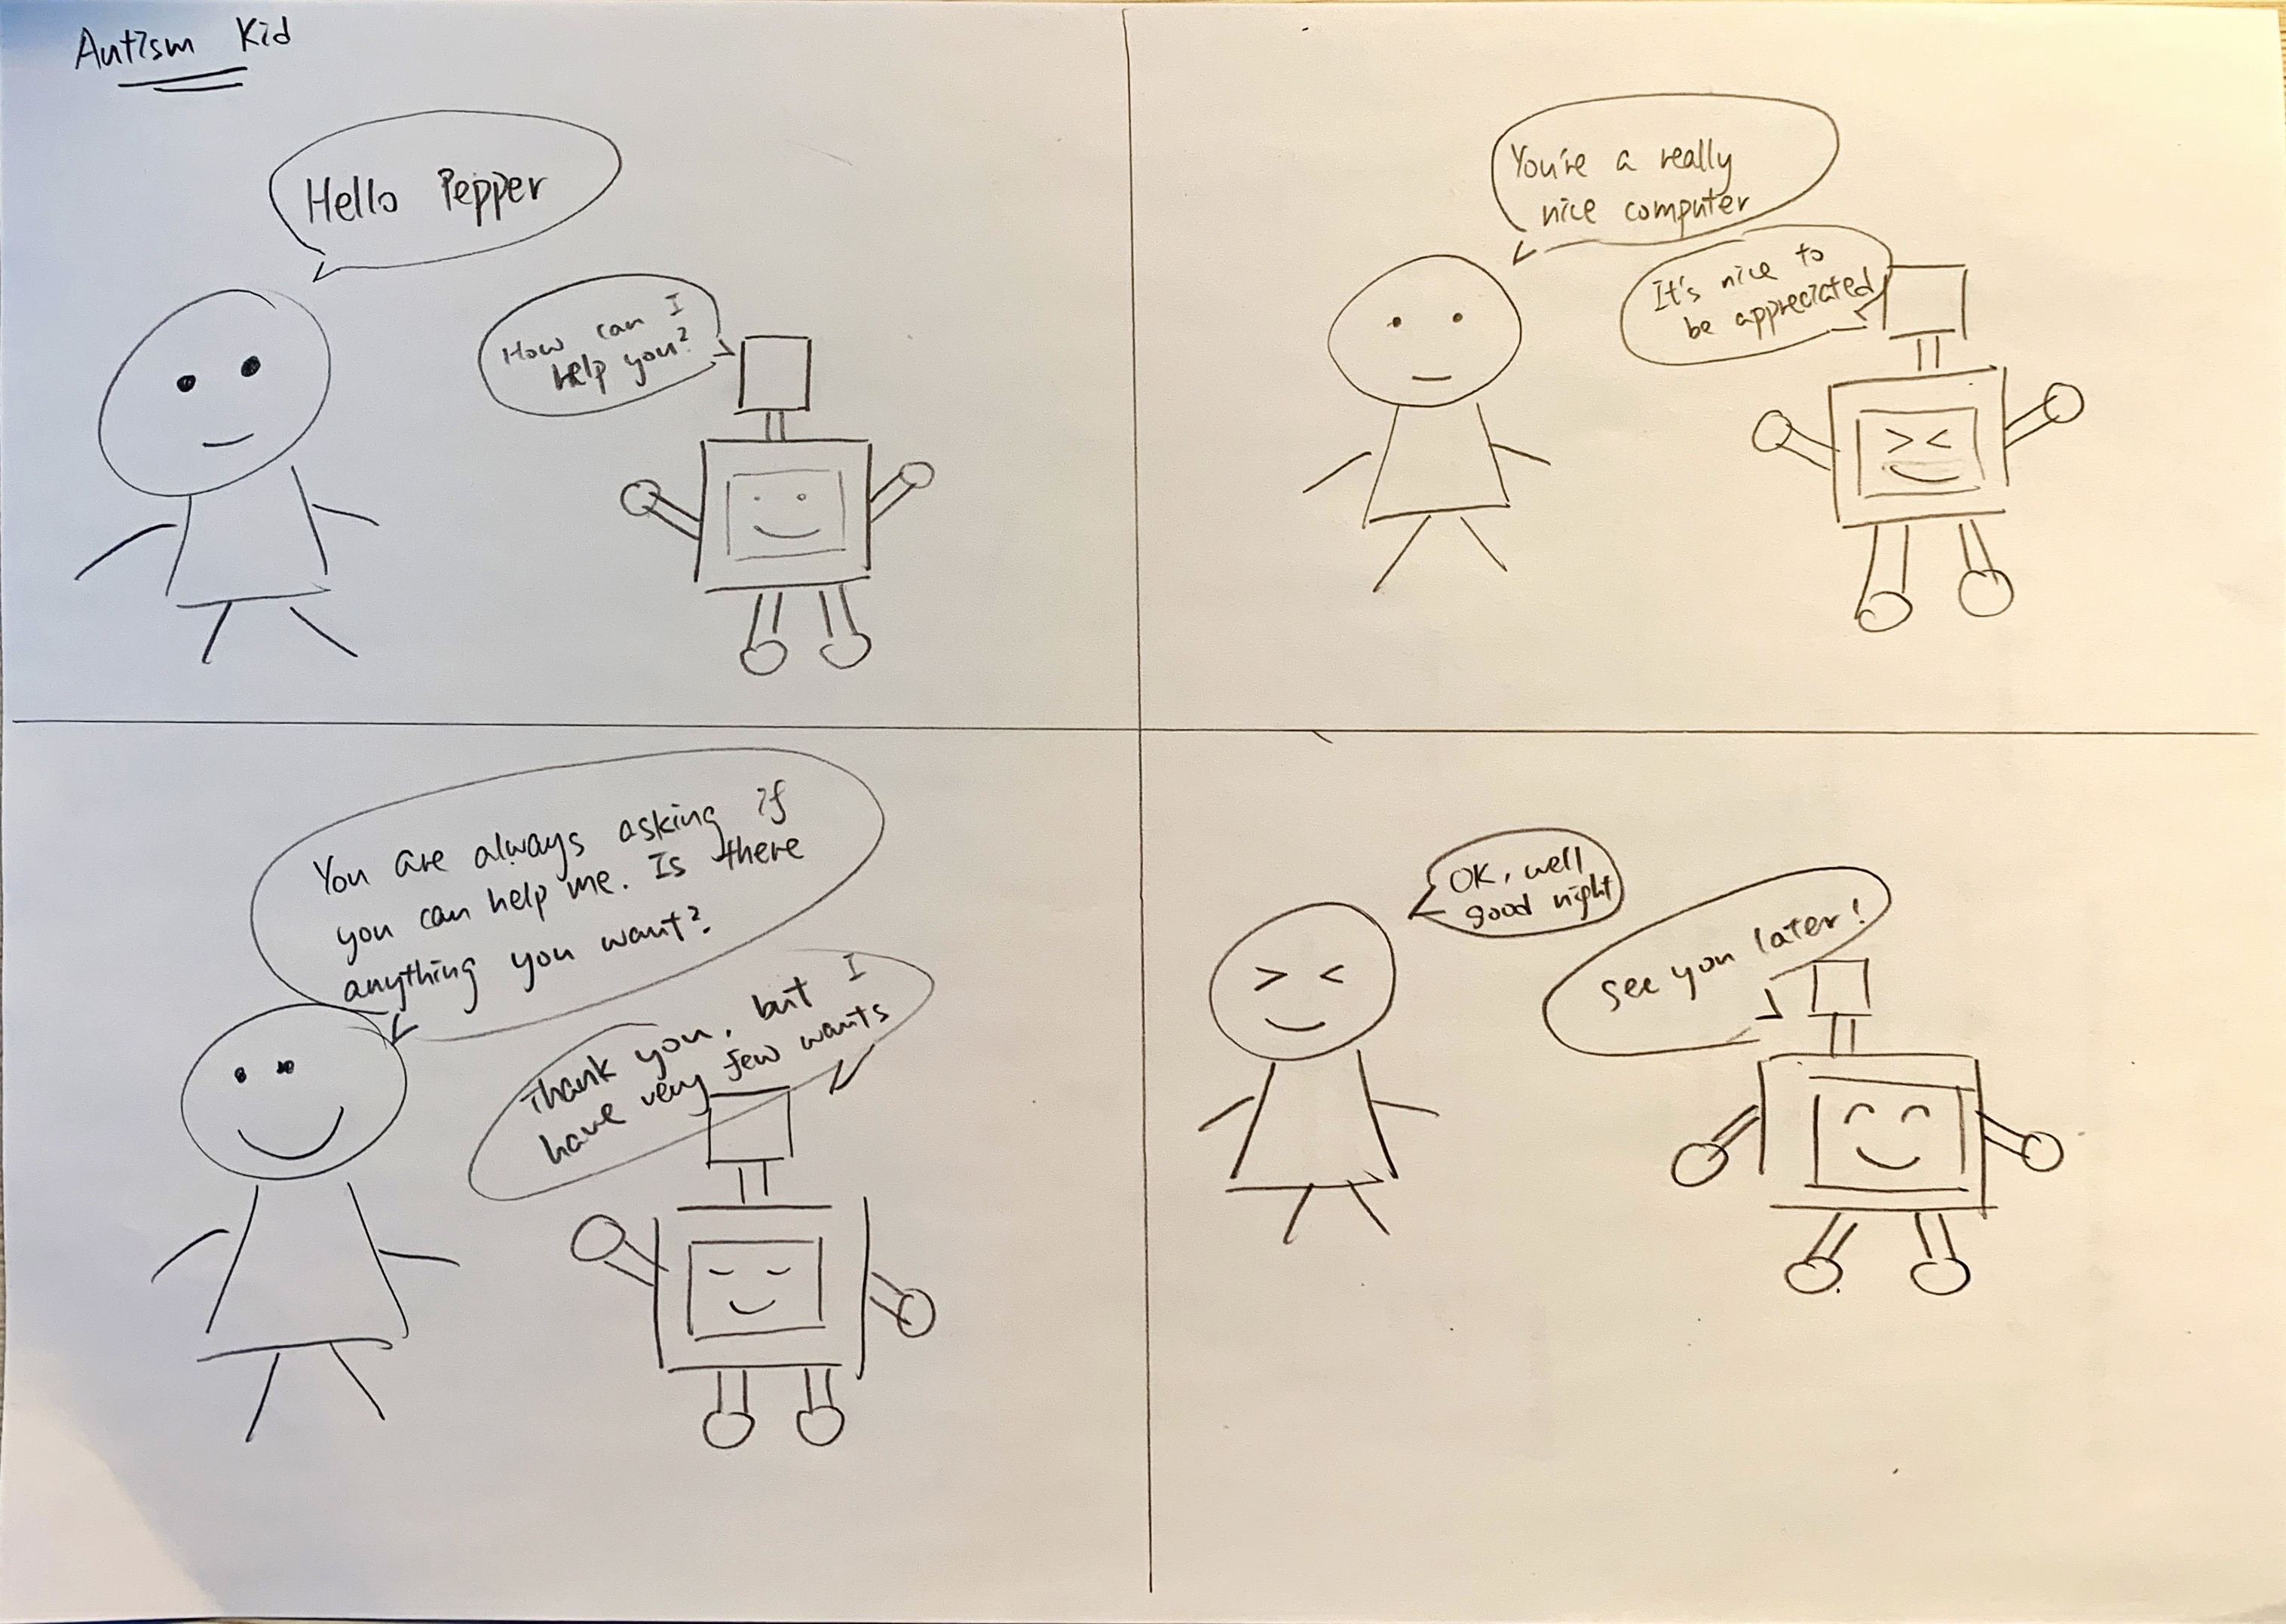 Autism Kid
Hello Pepper
How can I
help you?
You're a really
nice computer
It's nice to
be appreciated
You are always asking if
you can help me. Is there
anything you want?
Thank you, but I
have very few wants
OK, well
good night
See you later!